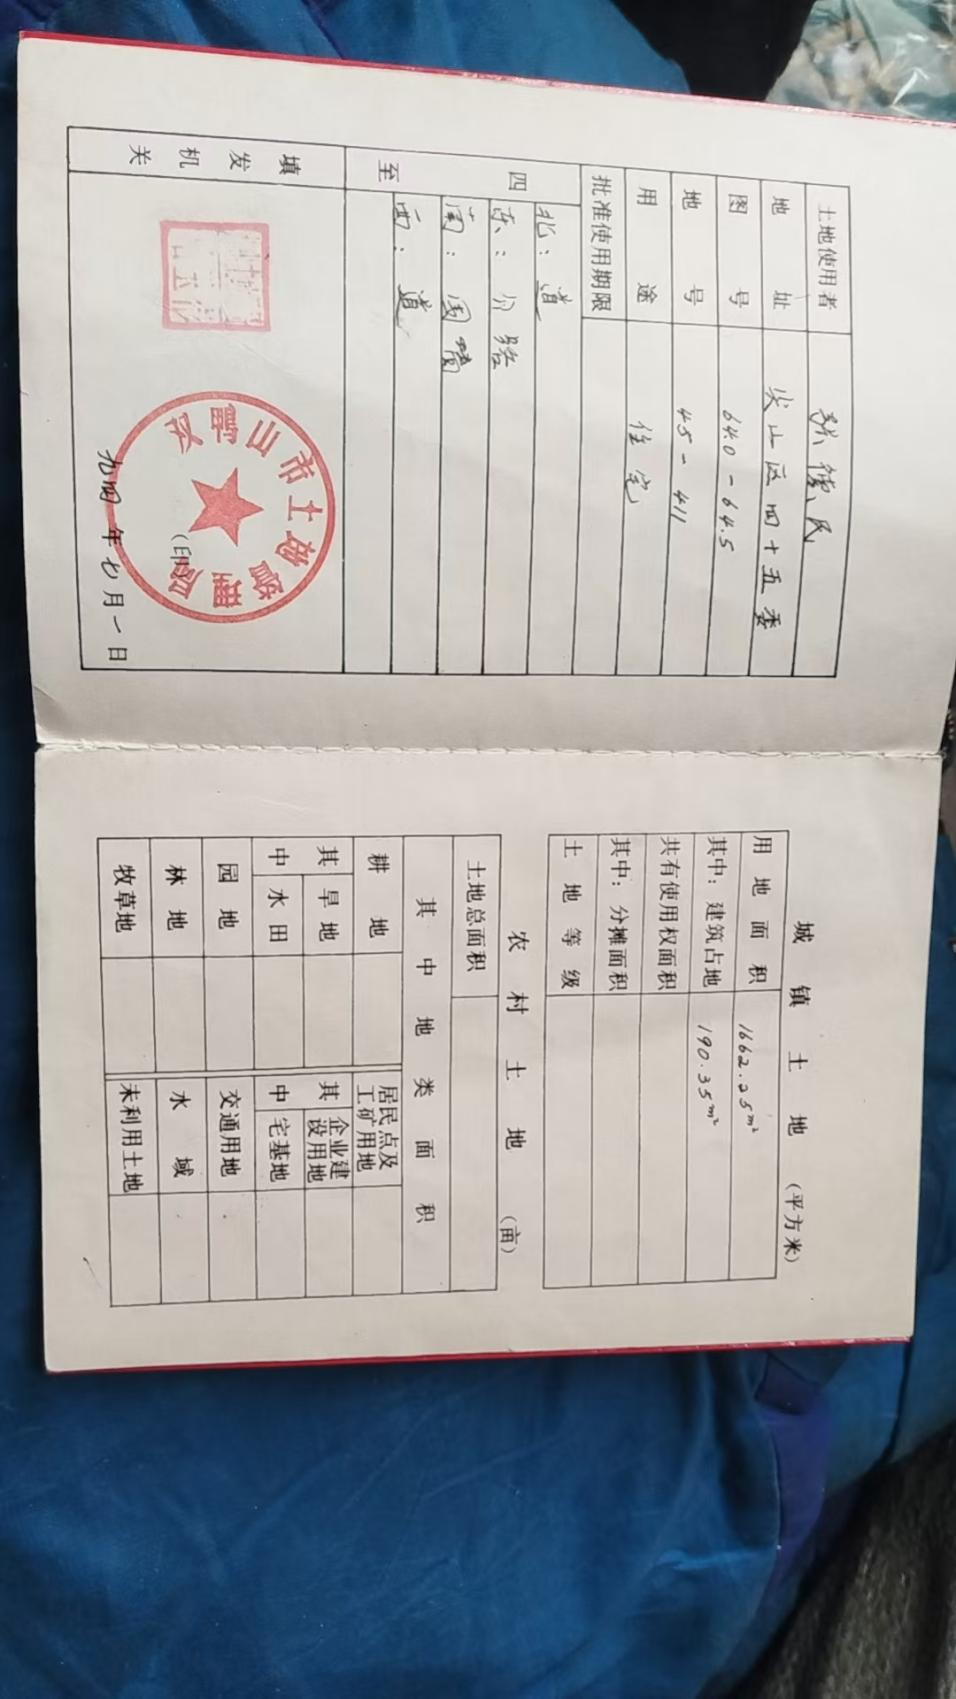 土地使用者 张德民
地址 尖山区四十五委
图号 64.0-64.5
地号 45-411
用途 住宅
批准使用期限
四至
北：道
东：公路
南：园
西：道
填发机关
双鸭山市土地管理局
(印)
九四年七月一日
城镇土地 (平方米)
用地面积 1662.25m²
其中：建筑占地 190.35m²
共有使用权面积
其中：分摊面积
土地等级
农村土地 (亩)
土地总面积
其中地类面积
耕地 居民点及工矿用地
其中 旱地 其中 企业建设用地
水田 宅基地
园地 交通用地
林地 水域
牧草地 未利用土地